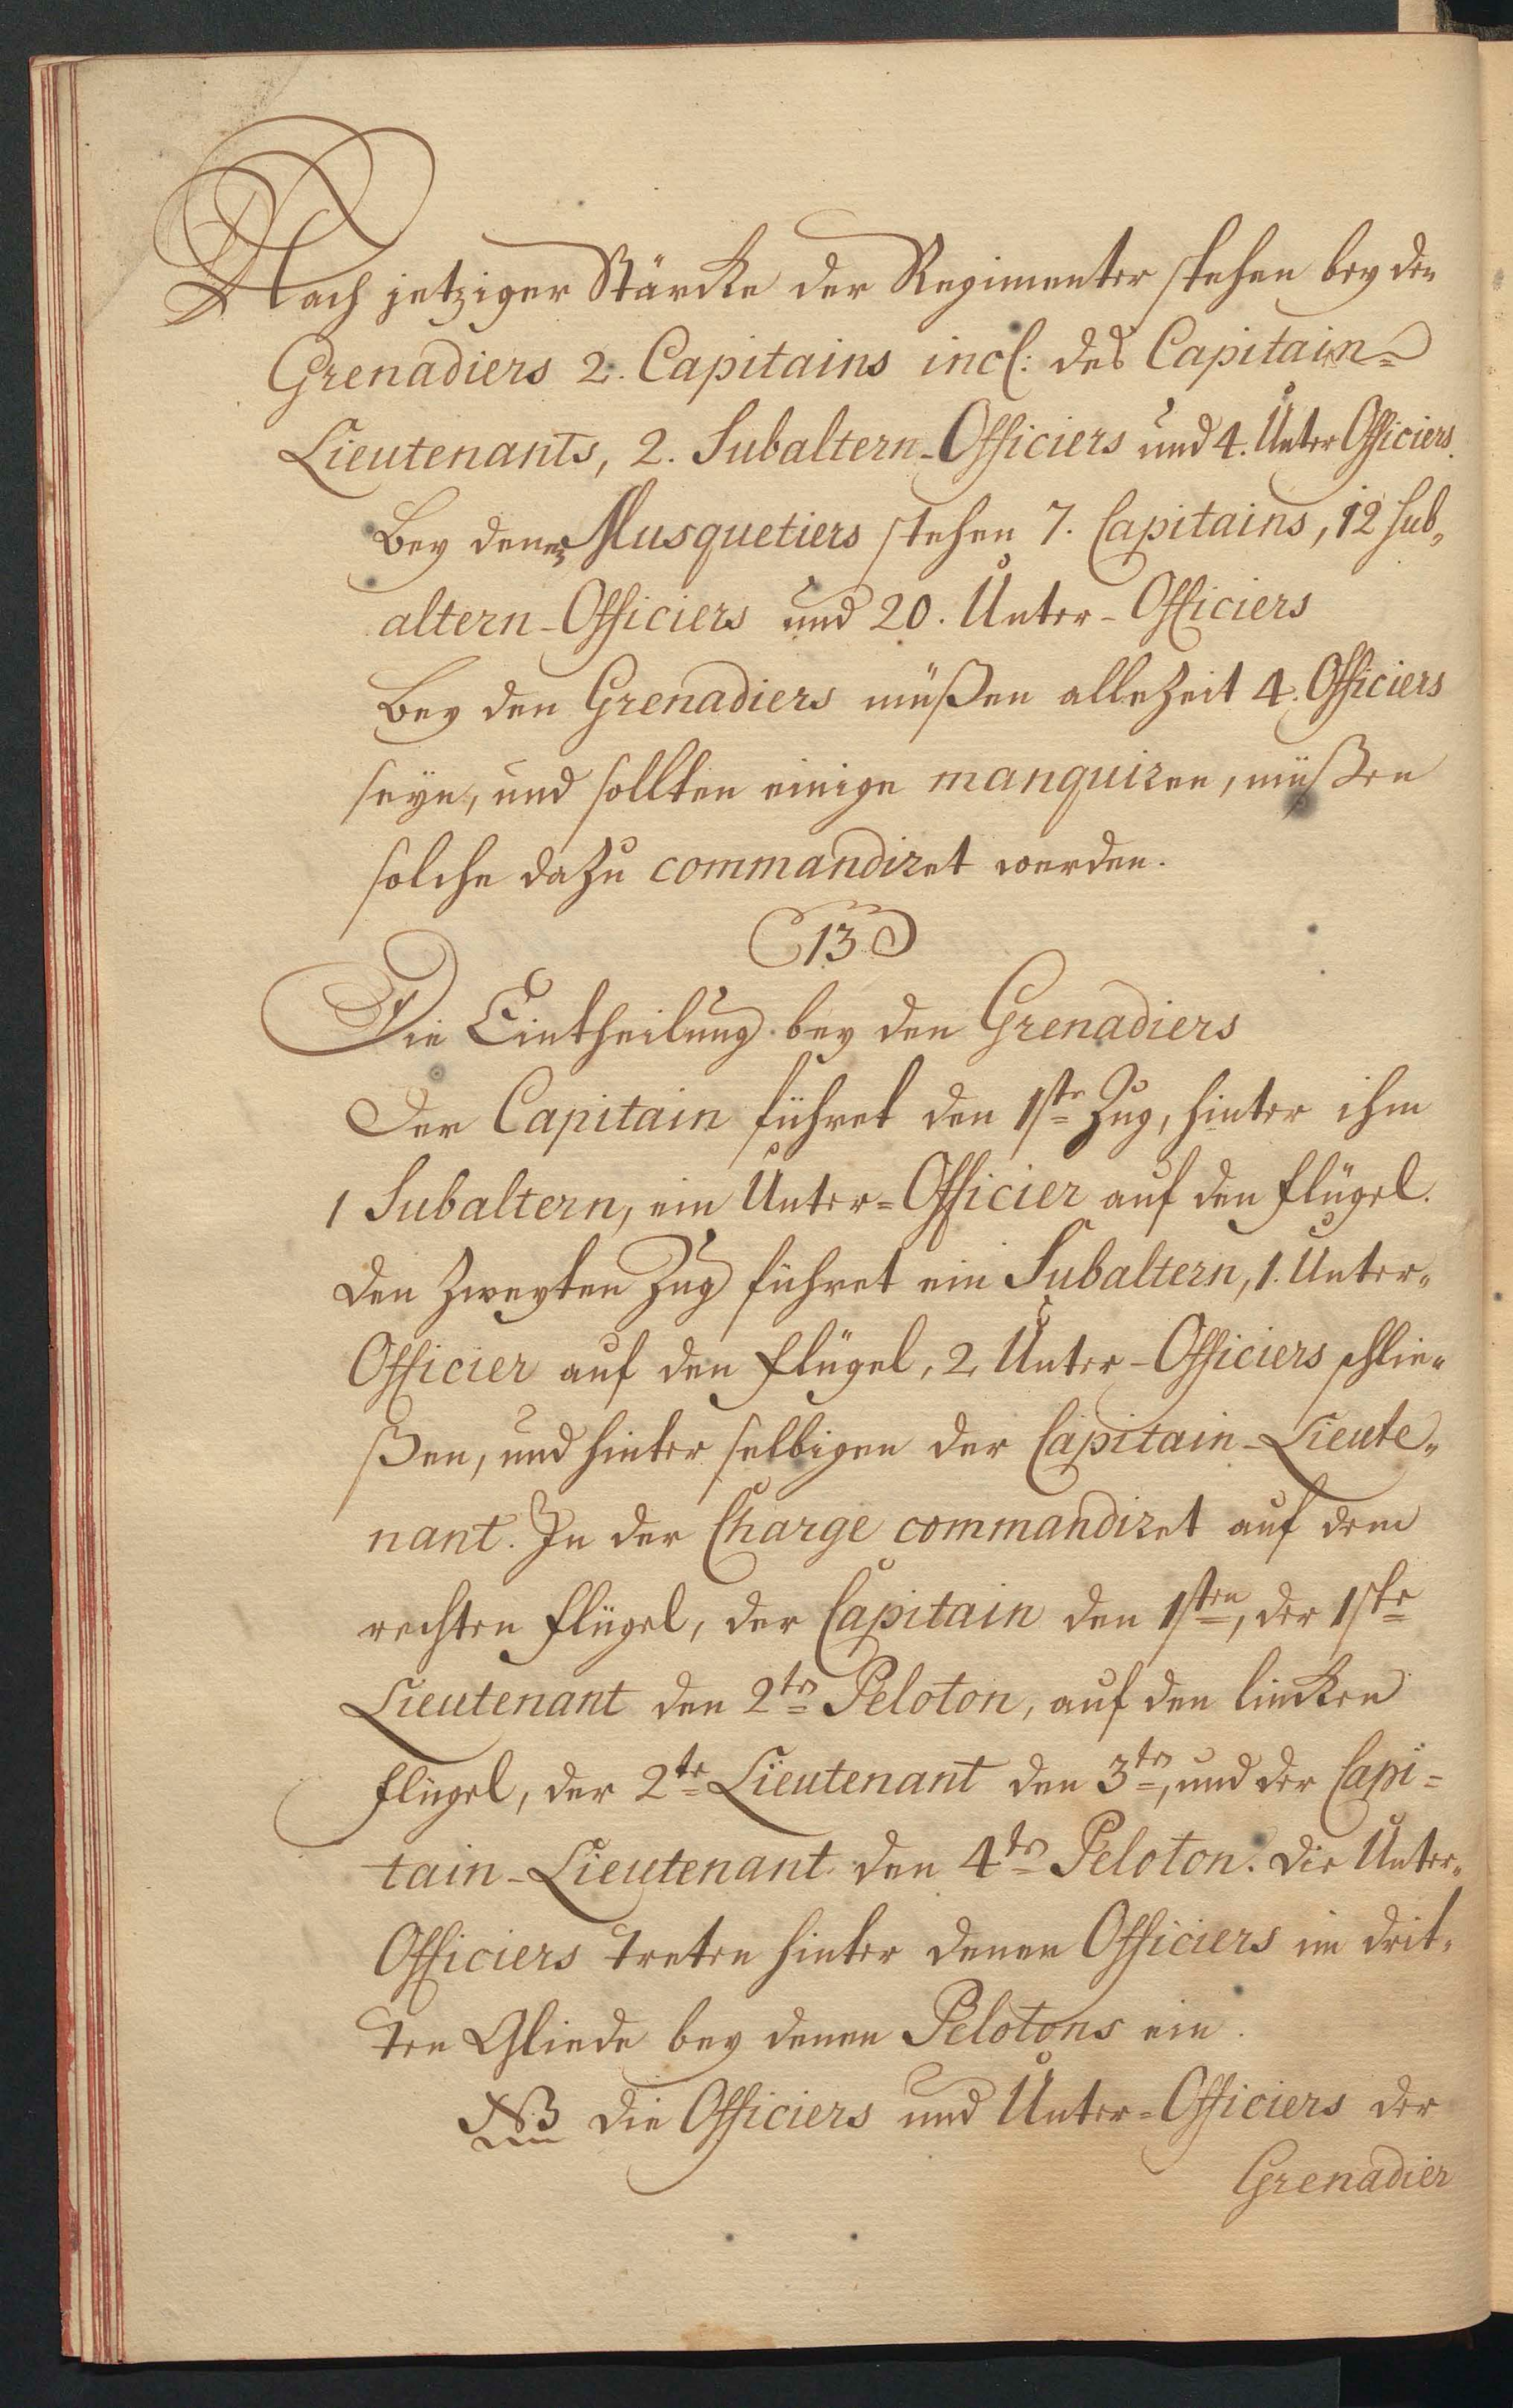 Nach jetziger Stärcke der Regimenter stehen bey den
Grenadiers 2. Capitains incl: des Capitain-
Lieutenants, 2. Subaltern-Officiers und 4. Unter Officiers.
Bey denen Musquetiers stehen 7. Capitains, 12 Sub„
altern-Officiers und 20. Unter-Officiers
Bey den Grenadiers müßen allezeit 4. Officiers
seyn, und sollten einige manquiren, müßen
solche dazu commandiret werden.
13
Die Eintheilung bey den Grenadiers
Der Capitain führet den 1ste Zug, hinter ihm
1 Subaltern, ein Unter=Officier auf den Flügel.
Den zweyten Zug führet ein Subaltern, 1. Unter„
Officier auf den Flügel, 2 Unter-Officiers schlie„
ßen, und hinter selbigen der Capitain-Lieute„
nant. In der Charge commandiret auf dem
rechten Flügel, der Capitain den 1sten, der 1ste
Lieutenant den 2ten Peloton, auf den lincken
Flügel, der 2te Lieutenant den 3ten, und der Capi=
tain-Lieutenant den 4ten Peloton. Die Unter„
Officiers treten hinter denen Officiers im drit„
ten Gliede bey denen Pelotons ein.
NB die Officiers und Unter=Officiers der
Grenadier